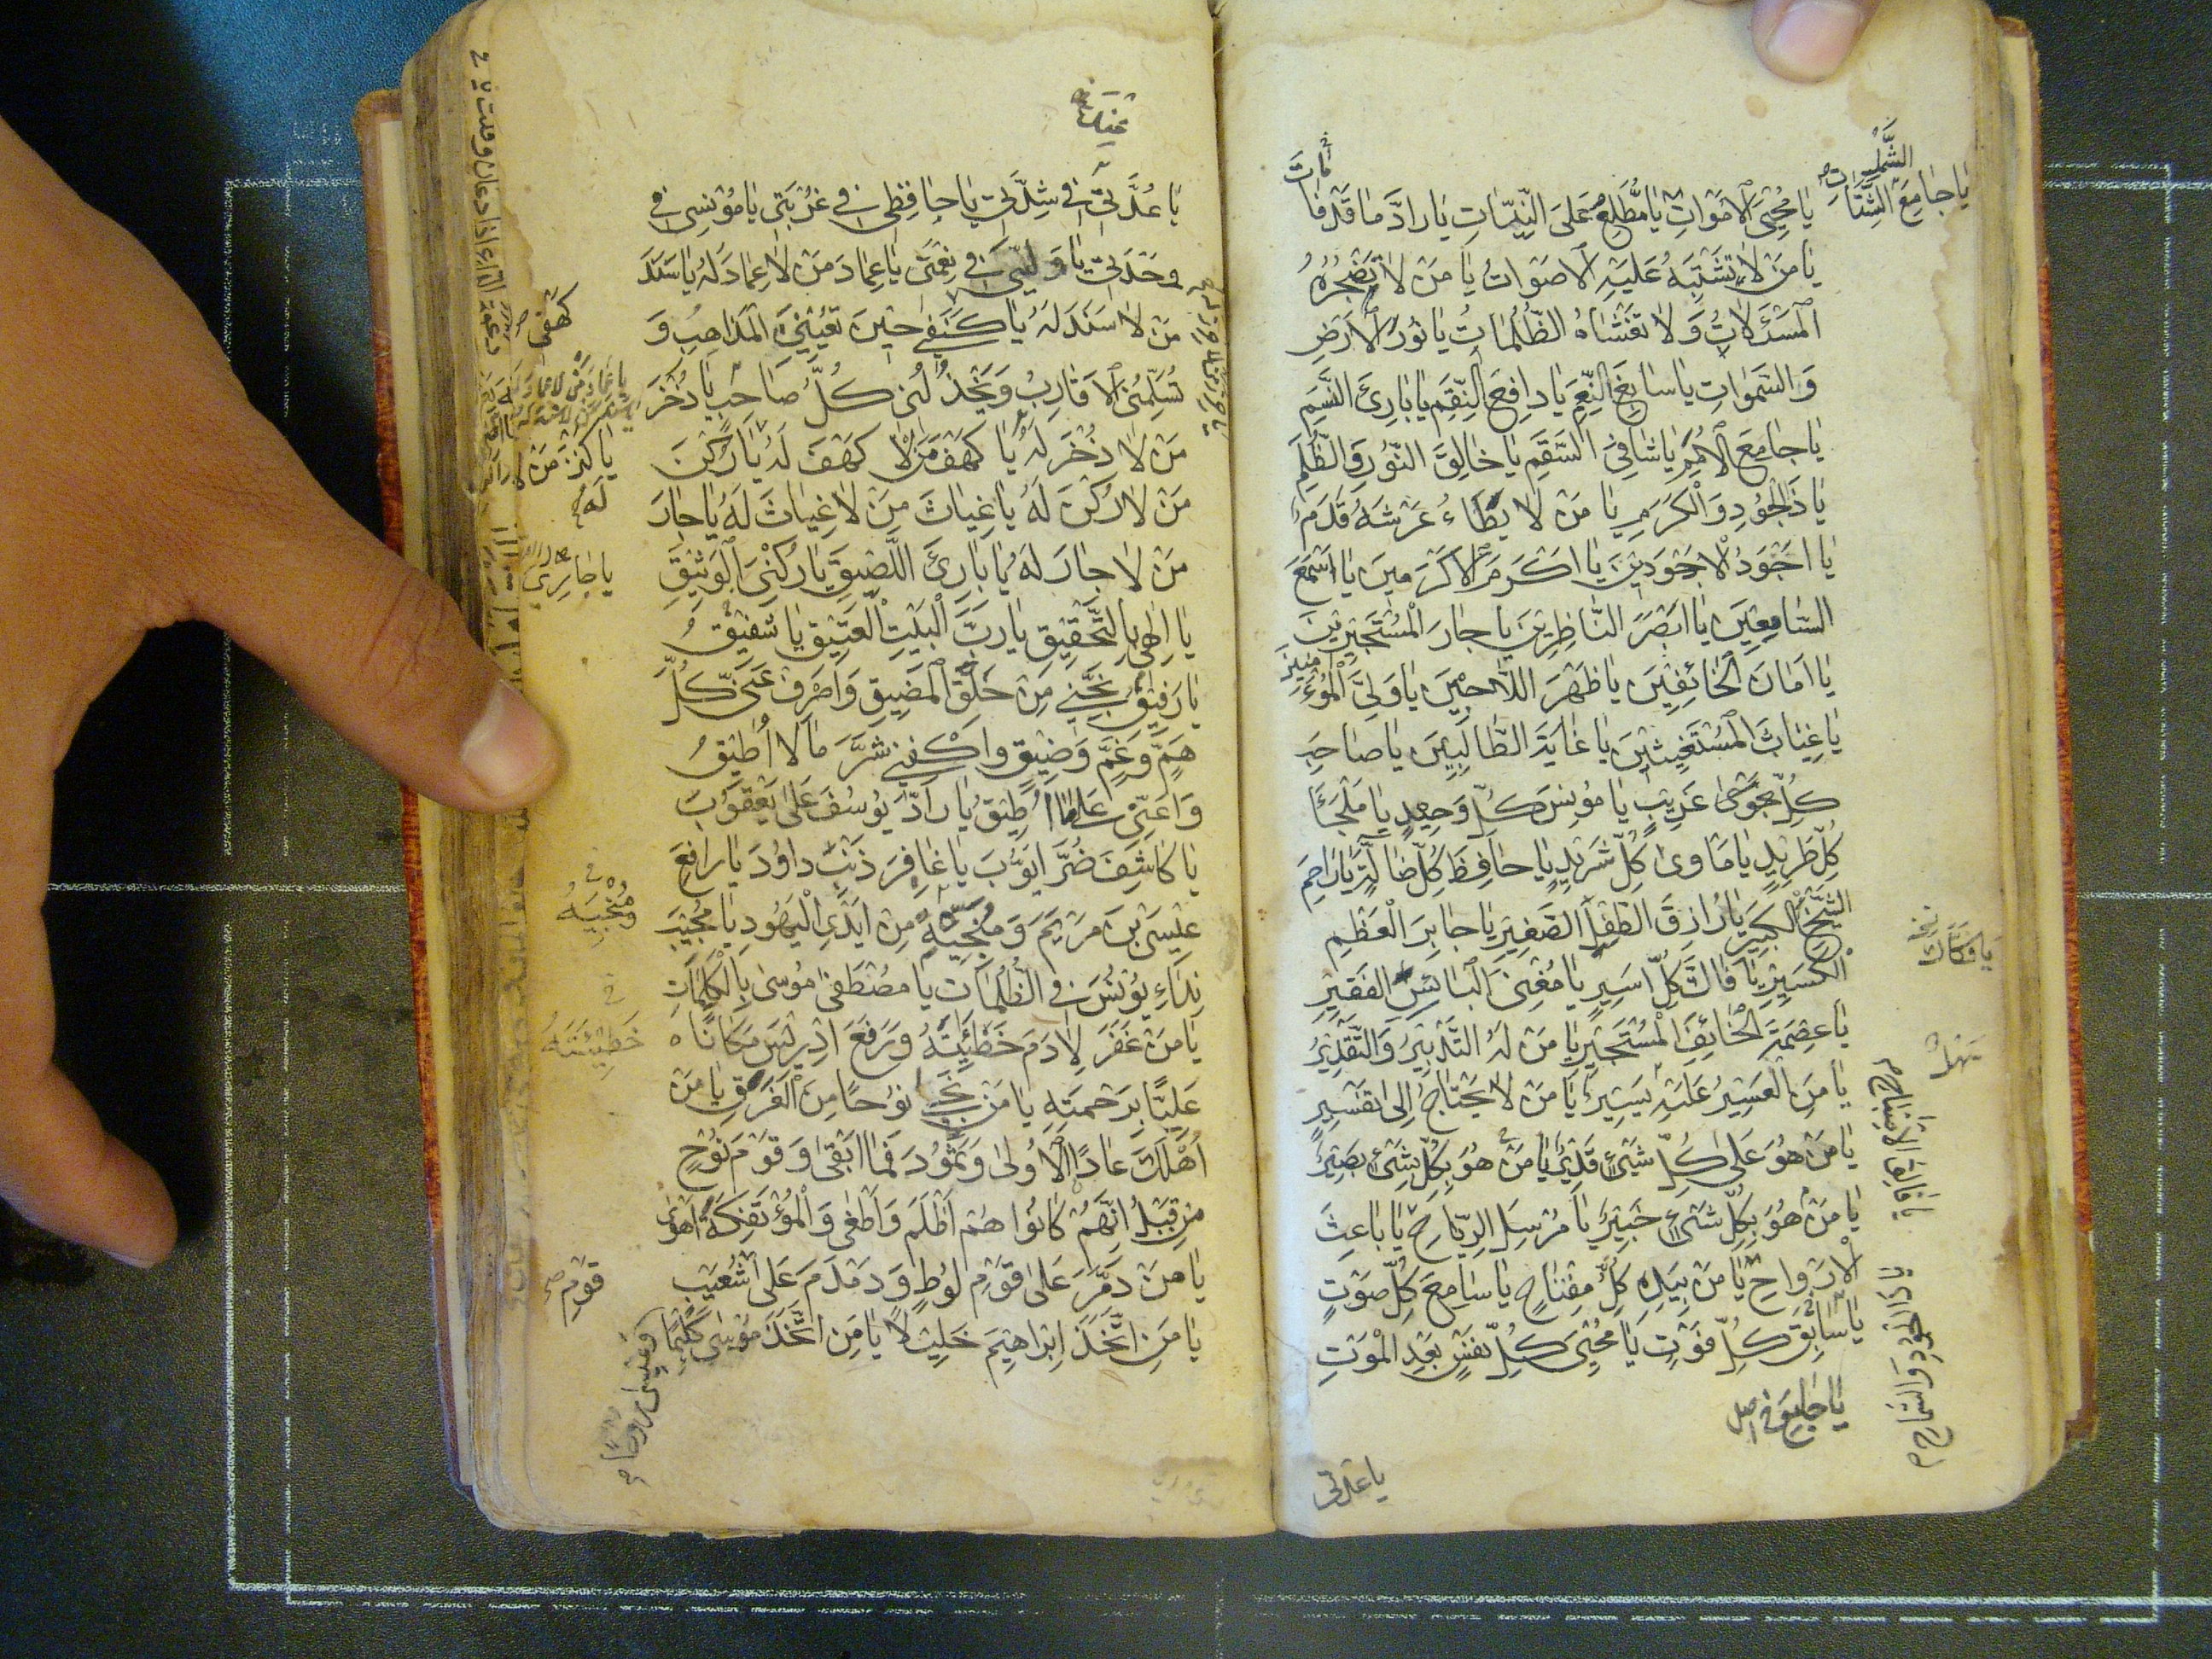 الشمل
يا جامع الشتات
يا مُحْيِيَ الْاَمْوَاتِ يا مُطَّلِعُ عَلَى النِّيّاتِ يا رادَّ ما قَدْ فاتَ
يا مَنْ لا تَشْتَبِهُ عَلَيْهِ الْاَصْوَاتُ يا مَنْ لا تُضْجِرُهُ
الْمَسْئَلاتُ وَلا تَغْشَاهُ الظُّلُماتُ يا نُورَ الْاَرْضِ
وَالسَّمٰواتِ يا سابِغَ النِّعَمِ يا دافِعَ النِّقَمِ يا بارِئَ النَّسَمِ
يا جامِعَ الْاُمَمِ يا شافِيَ السَّقَمِ يا خالِقَ النُّورِ وَالظُّلَمِ
يا ذَا الْجُودِ وَالْكَرَمِ يا مَنْ لا يَطَاءُ عَرْشَهُ قَدَمٌ
يا اَجْوَدَ الْاَجْوَدِينَ يا اَكْرَمَ الْاَكْرَمِينَ يا اَسْمَعَ
السّامِعِينَ يا اَبْصَرَ النّاظِرِينَ يا جارَ الْمُسْتَجِيرِينَ
يا اَمَانَ الْخائِفِينَ يا ظَهْرَ اللّاجِينَ يا وَلِيَّ الْمُؤْمِنِينَ
يا غِيَاثَ الْمُسْتَغِيثِينَ يا غايَةَ الطّالِبِينَ يا صاحِبَ
كُلِّ غَرِيبٍ يا مُونِسَ كُلِّ وَحِيدٍ يا مَلْجَأَ
كُلِّ طَرِيدٍ يا مَاوى كُلِّ شَرِيدٍ يا حافِظَ كُلِّ ضالَّةٍ يا راحِمَ
الشَّيْخِ الْكَبِيرِ يا رازِقَ الطِّفْلِ الصَّغِيرِ يا جابِرَ الْعَظْمِ
الْكَسِيرِ يا فاكَّ كُلِّ اَسِيرٍ يا مُغْنِيَ الْبائِسِ الْفَقِيرِ
يا فكّاك
يا عِصْمَةَ الْخائِفِ الْمُسْتَجِيرِ يا مَنْ لَهُ التَّدْبِيرُ وَالتَّقْدِيرُ
يا مَنِ الْعَسِيرُ عَلَيْهِ يَسِيرٌ يا مَنْ لا يَحْتاجُ اِلى تَفْسِيرٍ
يا مَنْ هُوَ عَلى كُلِّ شَيْءٍ قَدِيرٌ يا مَنْ هُوَ بِكُلِّ شَيْءٍ بَصِيرٌ
يا مَنْ هُوَ بِكُلِّ شَيْءٍ خَبِيرٌ يا مُرْسِلَ الرِّياحِ يا باعِثَ
الْاَرْواحِ يا مَنْ بِيَدِهِ كُلُّ مِفْتاحٍ يا سامِعَ كُلِّ صَوْتٍ
يا سابِقَ كُلِّ فَوْتٍ يا مُحْيِيَ كُلِّ نَفْسٍ بَعْدَ الْمَوْتِ
يا فالق الاصباح
يا ذا الجود والسماح
يا عدتي
يا عُدَّتِي فِي شِدَّتِي يا حافِظِي فِي غُرْبَتِي يا مُونِسِي فِي
وَحْدَتِي يا وَلِيِّي فِي نِعْمَتِي يا عِمادَ مَنْ لا عِمادَ لَهُ يا سَنَدَ
مَنْ لا سَنَدَ لَهُ يا كَنَفِي حِينَ تُعْيِينِي الْمَذاهِبُ وَ
كهفي
تُسَلِّمُنِي الْاَقارِبُ وَيَخْذُلُنِي كُلُّ صاحِبٍ يا ذُخْرَ
مَنْ لا ذُخْرَ لَهُ يا كَهْفَ مَنْ لا كَهْفَ لَهُ يا رُكْنَ
يا كنز من لا
له
مَنْ لا رُكْنَ لَهُ يا غِياثَ مَنْ لا غِياثَ لَهُ يا جارَ
مَنْ لا جارَ لَهُ يا جارِيَ اللَّصِيقَ يا رُكْنِيَ الْوَثِيقَ
يا اِلٰهِي بِالتَّحْقِيقِ يا رَبَّ الْبَيْتِ الْعَتِيقِ يا شَفِيقُ
يا رَفِيقُ نَجِّنِي مِنْ حَلَقِ الْمَضِيقِ وَاصْرِفْ عَنِّي كُلَّ
هَمٍّ وَغَمٍّ وَضِيقٍ وَاكْفِنِي شَرَّ ما لا اُطِيقُ
وَاَعِنِّي عَلى ما اُطِيقُ يا رادَّ يُوسُفَ عَلى يَعْقُوبَ
يا كاشِفَ ضُرِّ اَيُّوبَ يا غافِرَ ذَنْبِ داوُدَ يا رافِعَ
عِيسَى بْنِ مَرْيَمَ وَمُنْجِيَهُ مِنْ اَيْدِي الْيَهُودِ يا مُجِيبَ
ومُنْجِيَهُ
نِداءِ يُونُسَ فِي الظُّلُماتِ يا مُصْطَفِيَ مُوسى بِالْكَلِماتِ
يا مَنْ غَفَرَ لِاٰدَمَ خَطِيئَتَهُ وَرَفَعَ اِدْرِيسَ مَكانًا
خَطِيئَتَهُ
عَلِيًّا بِرَحْمَتِهِ يا مَنْ نَجّى نُوحًا مِنَ الْغَرَقِ يا مَنْ
اَهْلَكَ عادًا الْاُولى وَثَمُودَ فَما اَبْقى وَقَوْمَ نُوحٍ
مِنْ قَبْلُ اِنَّهُمْ كانُوا هُمْ اَظْلَمَ وَاَطْغى وَالْمُؤْتَفِكَةَ اَهْوى
يا مَنْ دَمَّرَ عَلى قَوْمِ لُوطٍ وَدَمْدَمَ عَلى شُعَيْبٍ
قَوْمِ
يا مَنِ اتَّخَذَ اِبْراهِيمَ خَلِيلًا يا مَنِ اتَّخَذَ مُوسى كَلِيمًا